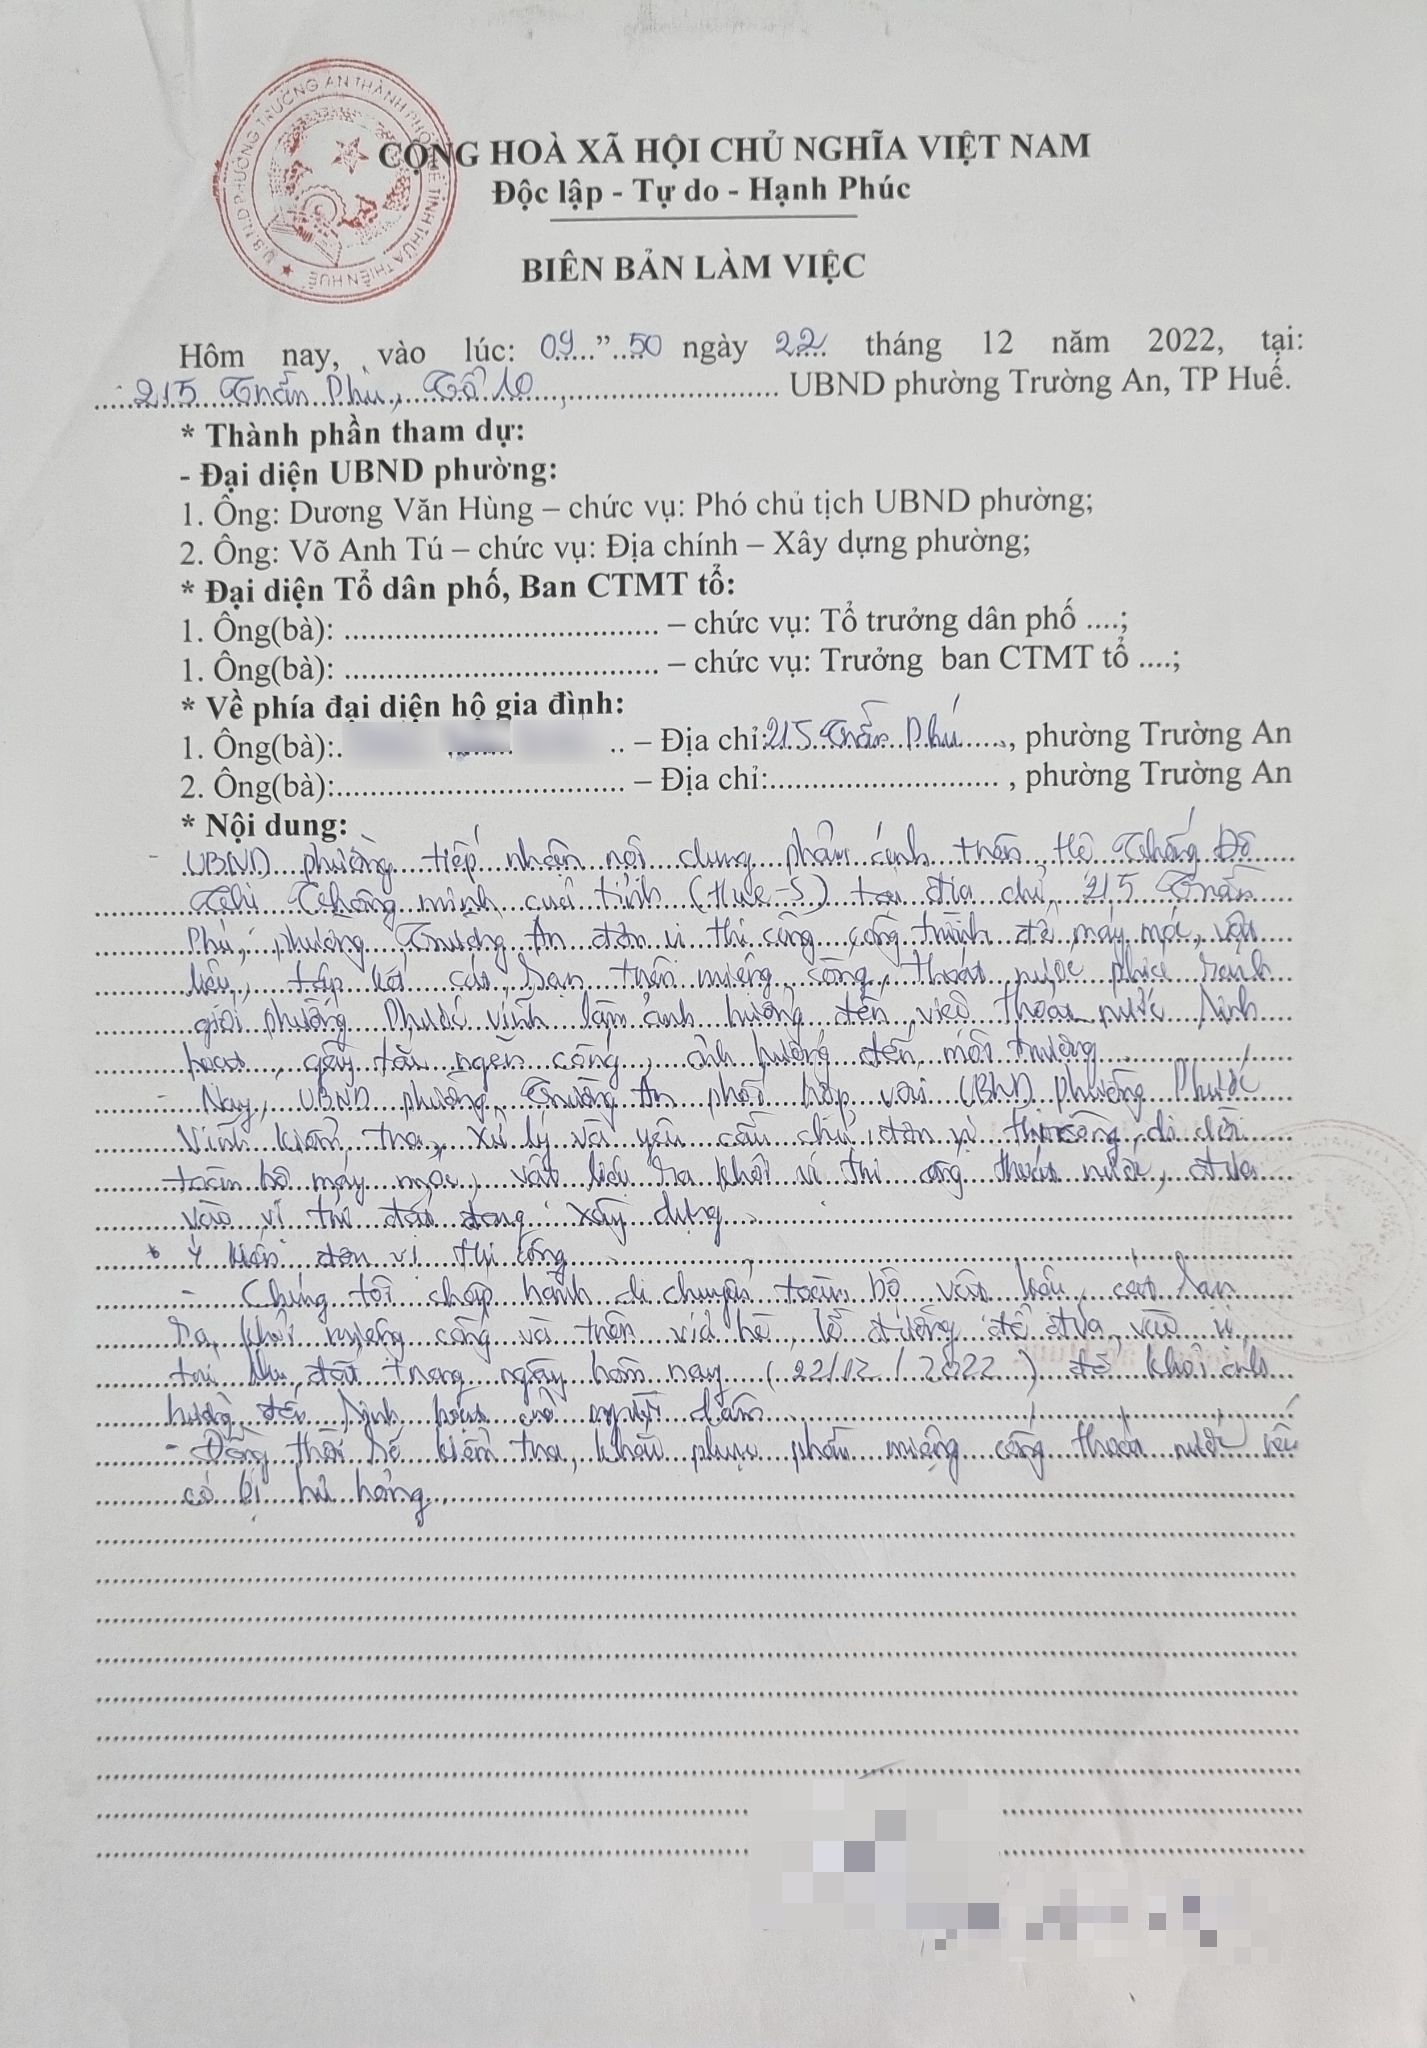 U.B.N.D PHƯỜNG TRƯỜNG AN THÀNH PHỐ HUẾ TỈNH THỪA THIÊN HUẾ
CỘNG HOÀ XÃ HỘI CHỦ NGHĨA VIỆT NAM
Độc lập - Tự do - Hạnh Phúc
BIÊN BẢN LÀM VIỆC
Hôm nay, vào lúc: 09...”...50 ngày 22 tháng 12 năm 2022, tại:
215 Trần Phú, Tổ 10, UBND phường Trường An, TP Huế.
* Thành phần tham dự:
- Đại diện UBND phường:
1. Ông: Dương Văn Hùng – chức vụ: Phó chủ tịch UBND phường;
2. Ông: Võ Anh Tú – chức vụ: Địa chính – Xây dựng phường;
* Đại diện Tổ dân phố, Ban CTMT tổ:
1. Ông(bà): ..................................... – chức vụ: Tổ trưởng dân phố ....;
1. Ông(bà): ..................................... – chức vụ: Trưởng ban CTMT tổ ....;
* Về phía đại diện hộ gia đình:
1. Ông(bà):. .. – Địa chỉ: 215 Trần Phú ......, phường Trường An
2. Ông(bà):.................................. – Địa chỉ:........................... , phường Trường An
* Nội dung:
- UBND phường tiếp nhận nội dung phản ánh trên Hệ Thống Đô
Thị Thông minh của tỉnh (Hue-S) tại địa chỉ 215 Trần
Phú, phường Trường An đơn vị thi công công trình để máy móc, vật
liệu, tập kết cát, sạn trên miệng cống thoát nước phía ranh
giới phường Phước Vĩnh làm ảnh hưởng đến việc thoát nước sinh
hoạt, gây tắc nghẽn cống, ảnh hưởng đến môi trường
- Nay, UBND phường Trường An phối hợp với UBND phường Phước
Vĩnh kiểm tra, xử lý và yêu cầu chủ đơn vị thi công di dời
toàn bộ máy móc, vật liệu ra khỏi vị trí cống thoát nước, đưa
vào vị trí đất đang xây dựng
* Ý kiến đơn vị thi công
- Chúng tôi chấp hành di chuyển toàn bộ vật liệu, cát sạn
ra khỏi miệng cống và trên vỉa hè, lề đường để đưa vào vị
trí khu đất trong ngày hôm nay (22/12/2022) để khỏi ảnh
hưởng đến sinh hoạt của người dân
- Đồng thời sẽ kiểm tra, khắc phục phần miệng cống thoát nước nếu
có bị hư hỏng